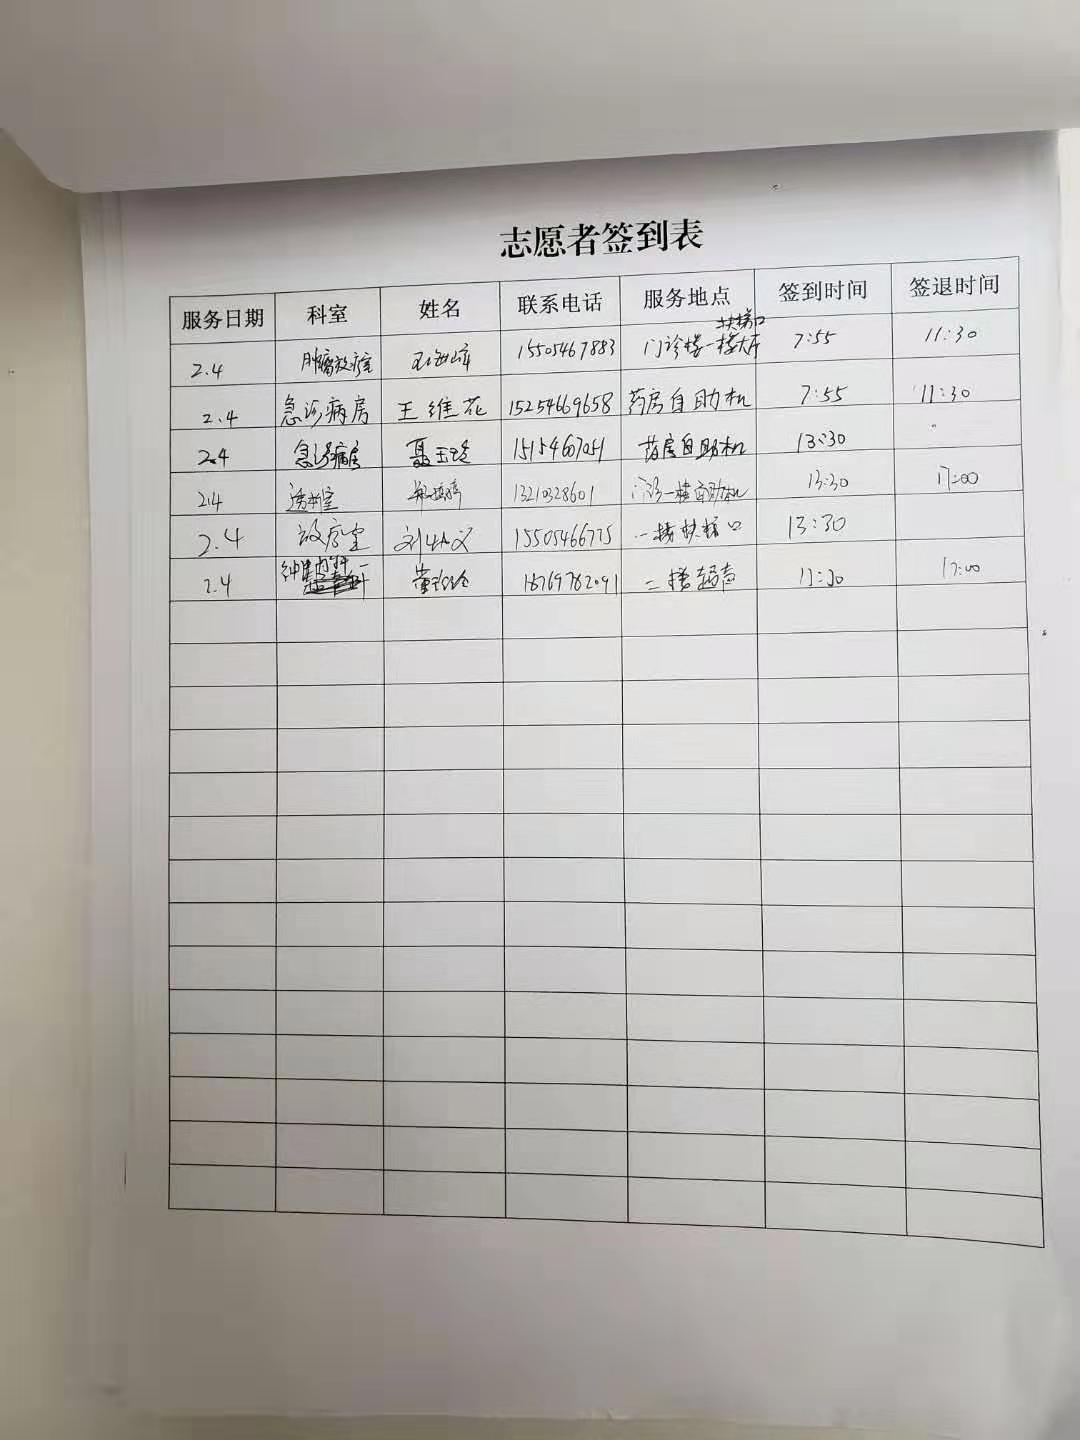 志愿者签到表
服务日期 科室 姓名 联系电话 服务地点 签到时间 签退时间
2.4 肿瘤放疗室 15505467883 门诊楼一楼大厅扶梯口 7:55 11:30
2.4 急诊病房 王维花 15254669658 药房自助机 7:55 11:30
2.4 急诊病房 聂玉廷 药房自助机 13:30
2.4 透析室 13210328601 门诊一楼自助机 13:30 17:00
2.4 放疗室 15505466775 一楼扶梯口 13:30
2.4 18769782091 二楼超声 17:00